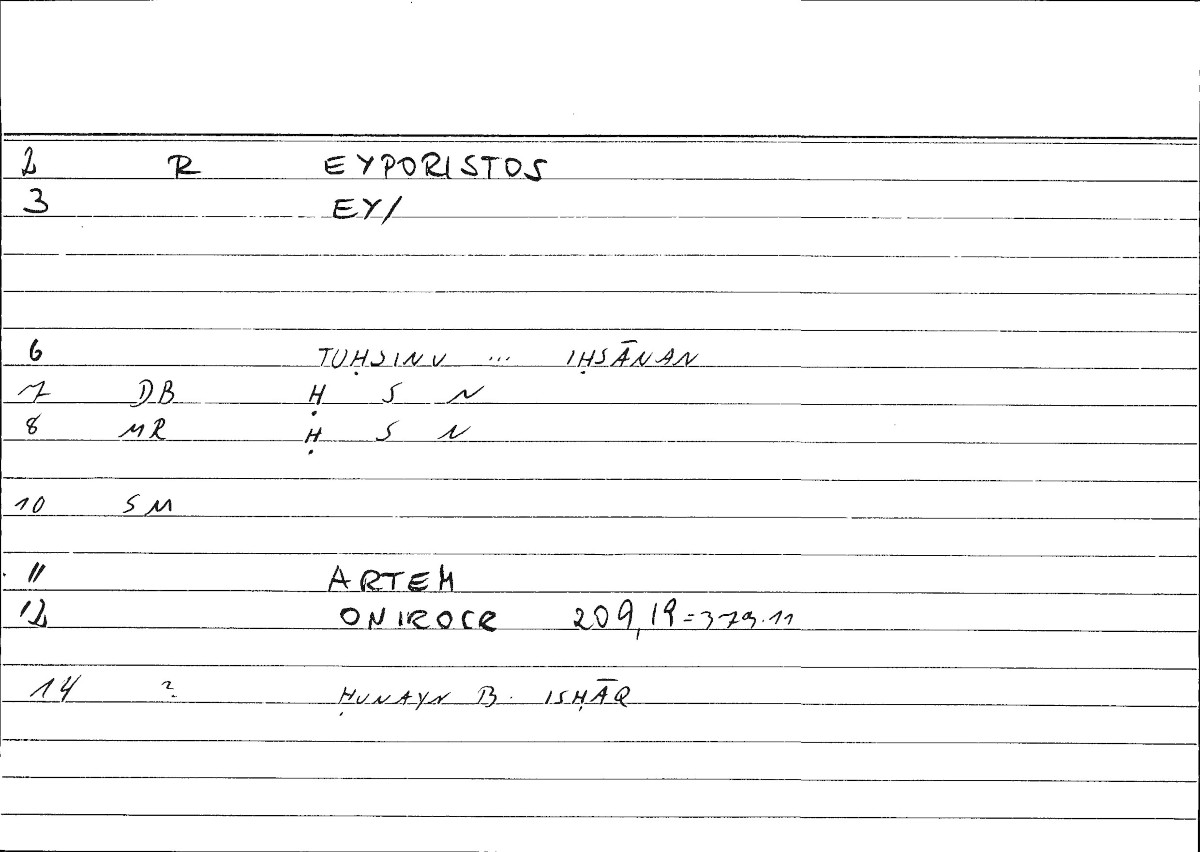 2 R EYPORISTOS
3 EY/
6 TUḤSINU ... IḤSĀNAN
7 DB Ḥ S N
8 MR Ḥ S N
10 SM
11 ARTEM
12 ONIROCR 209,19=379.11
14 ? ḤUNAYN B. ISḤĀQ